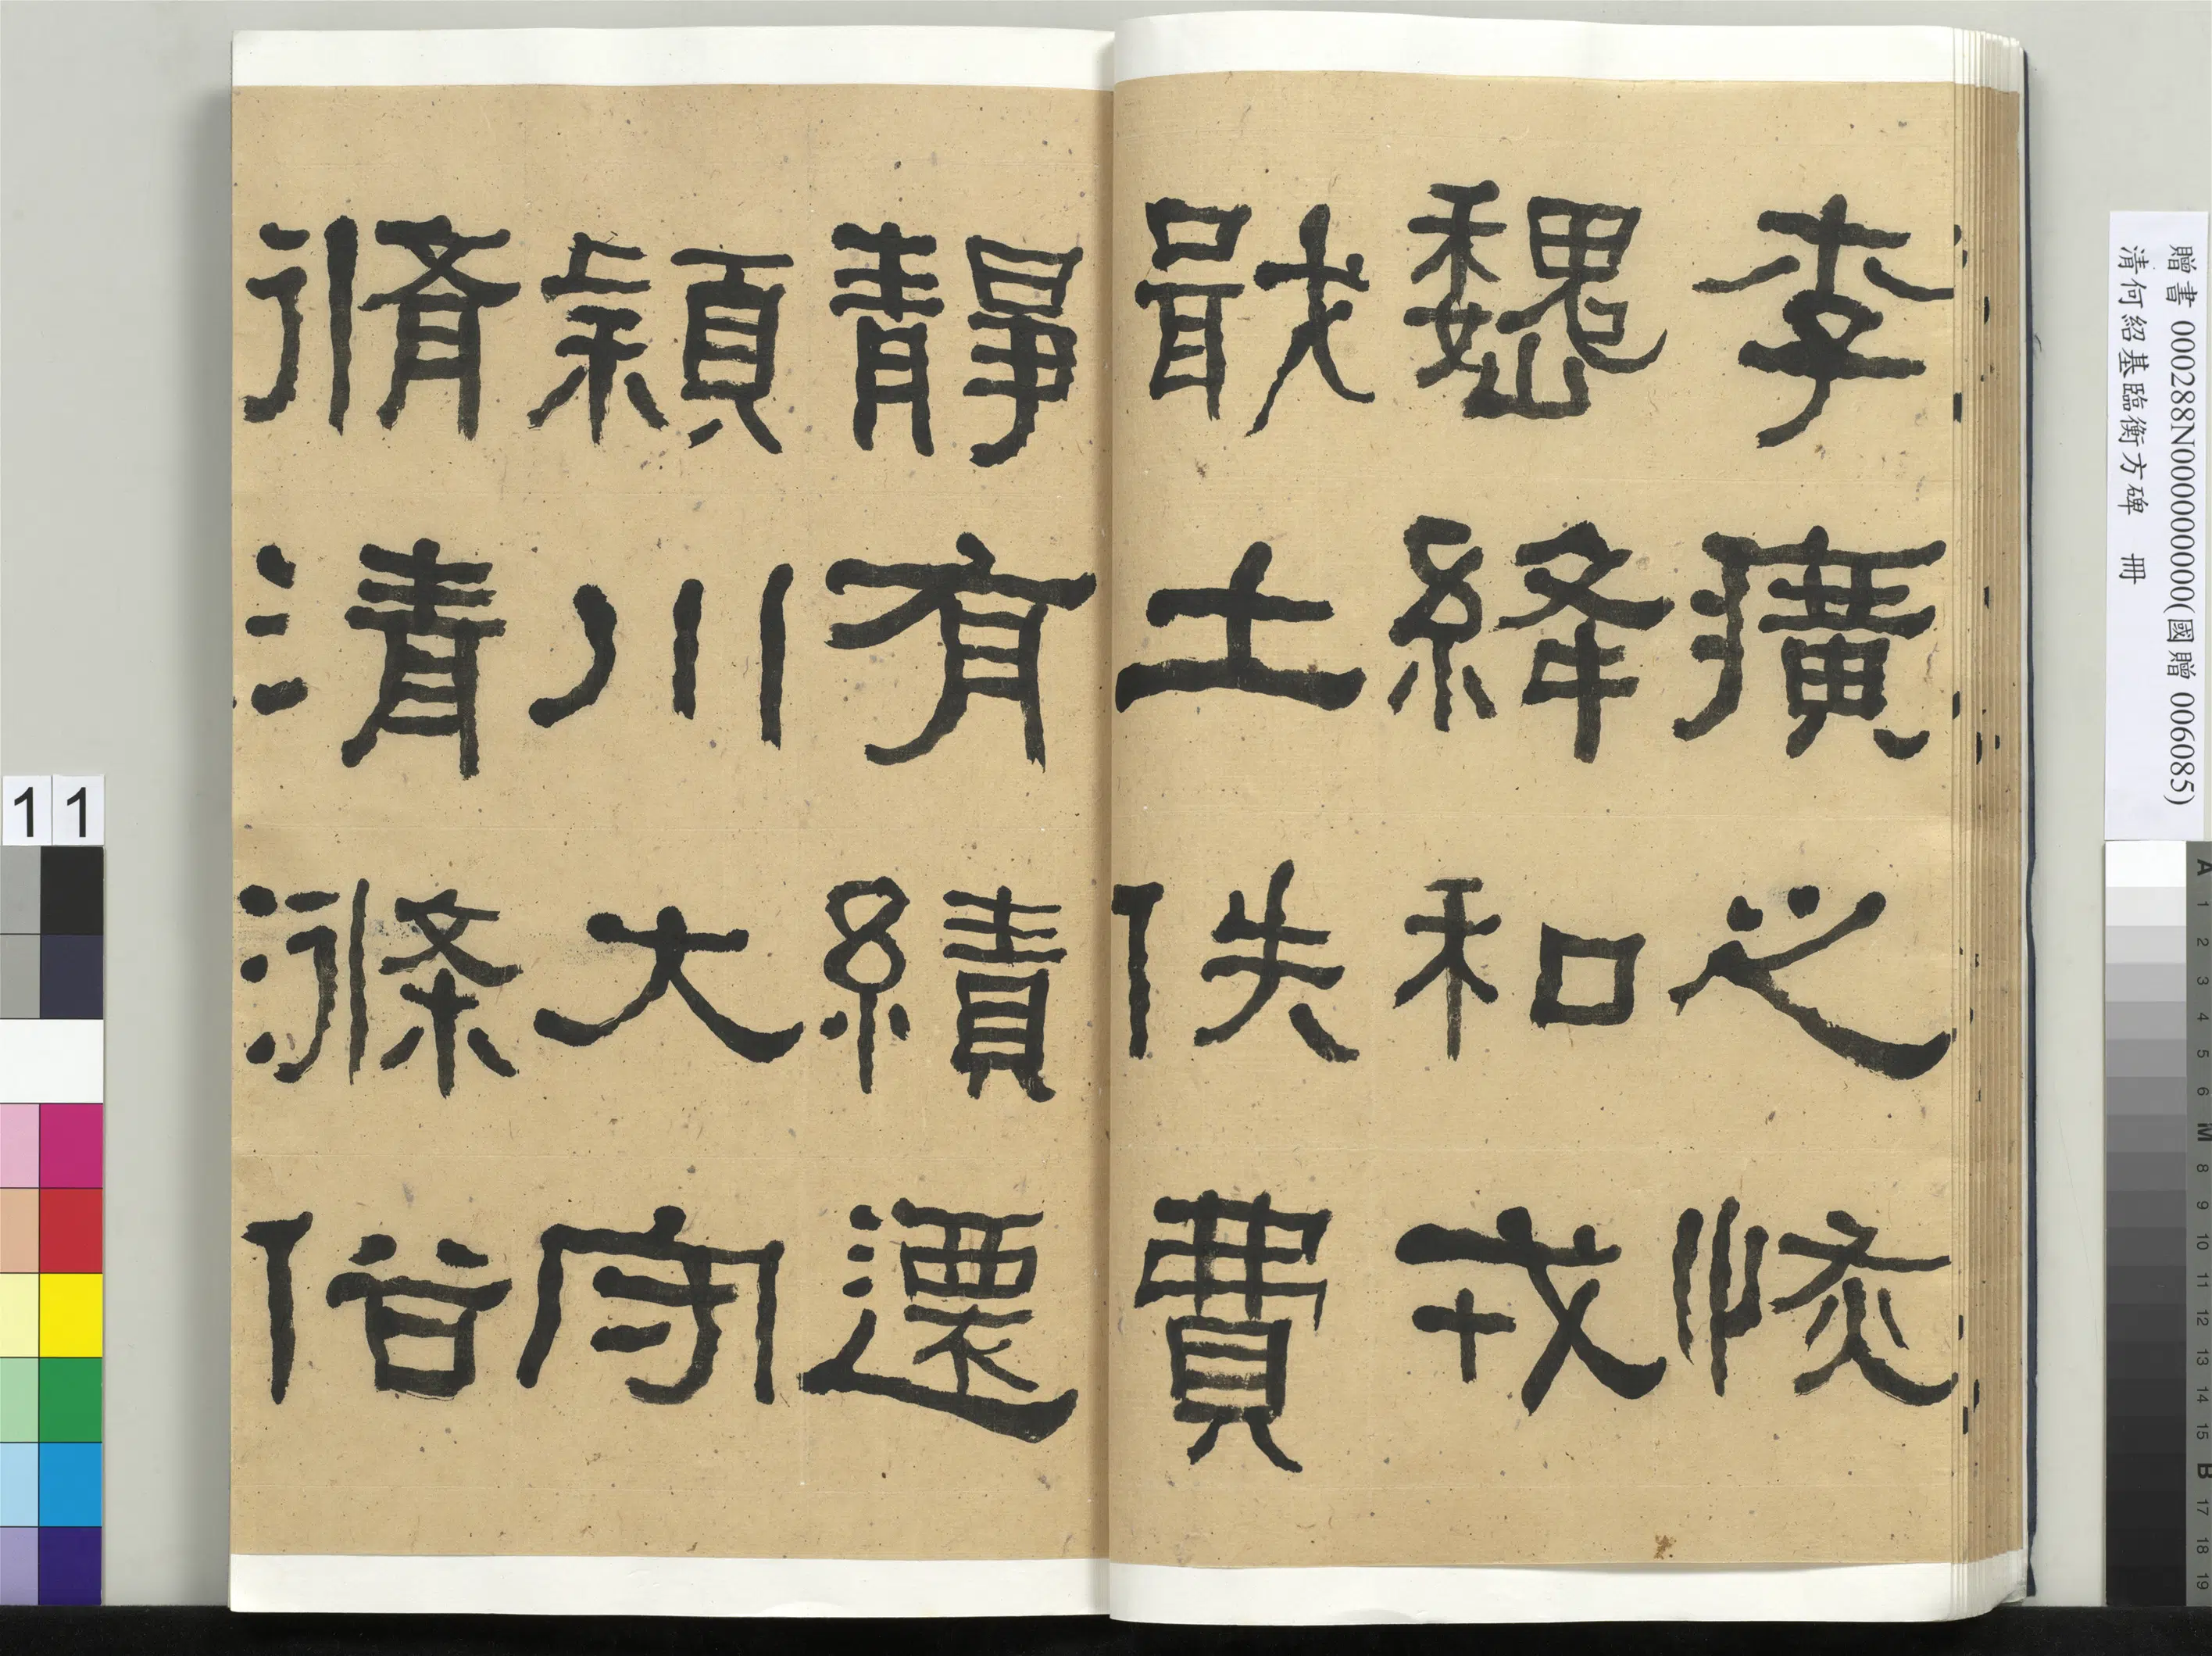 李廣之恢
魏絳和戎
戢士佚費
靜有績遷
穎川大守
脩清滌俗
贈書 000288N000000000(國贈 006085)
清何紹基臨衡方碑 冊
11
A 1 2 3 4 5 6 M 8 9 10 11 12 13 14 15 B 17 18 19